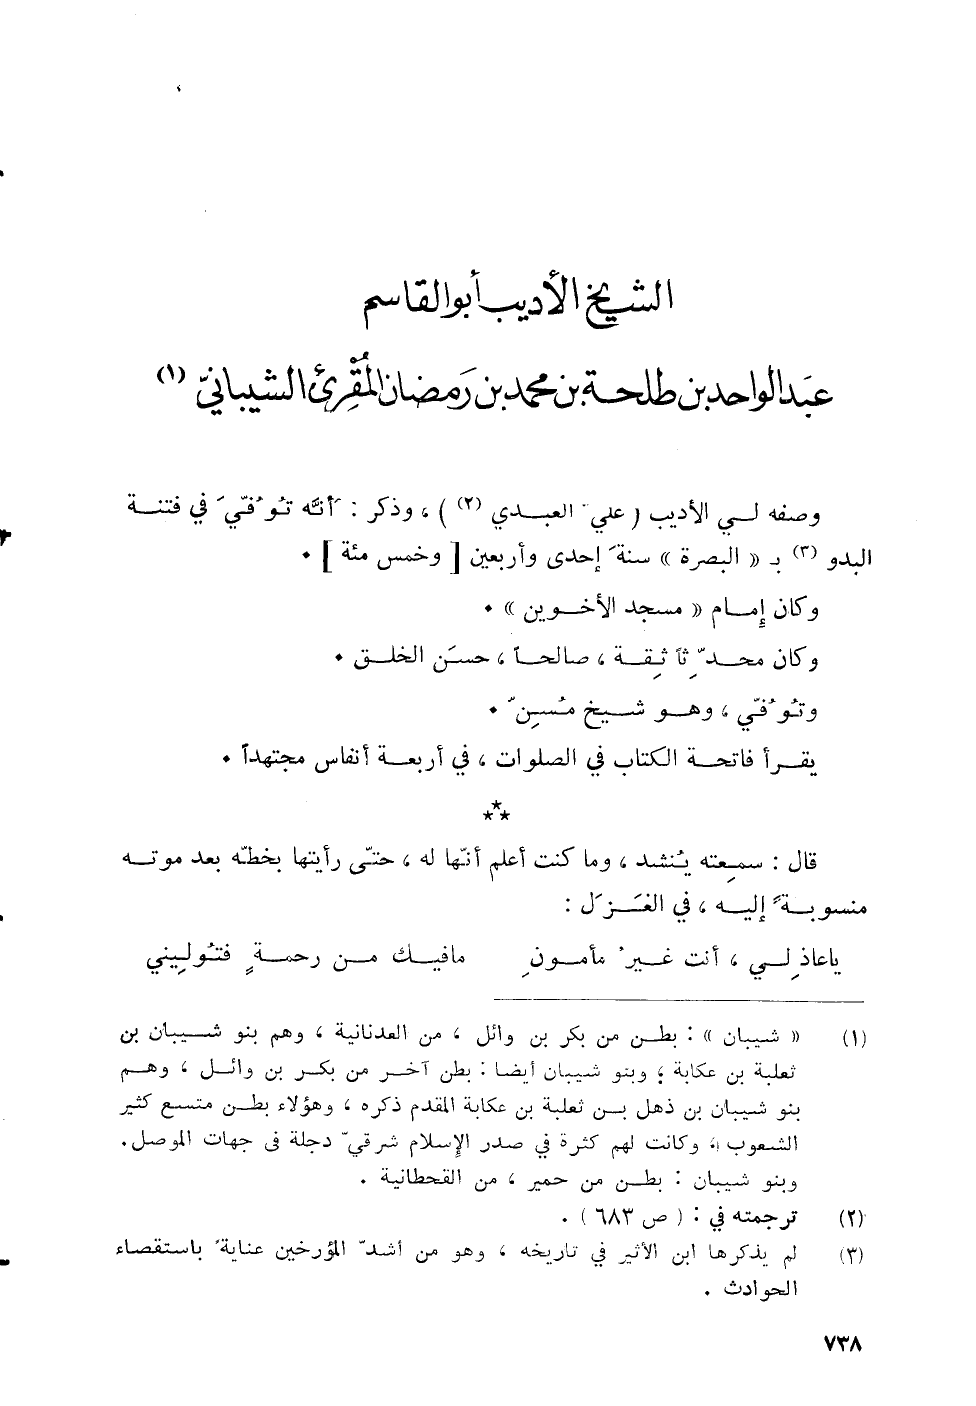 الشيخ الأديب أبو القاسم
عبد الواحد بن طلحة بن محمد بن رمضان المقرئ الشيباني (١)
وصفه لي الأديب ( علي العبدي (٢) ) ، وذكر : أنه توفي في فتنة
البدو (٣) بـ « البصرة » سنة إحدى وأربعين [ وخمس مئة ] .
وكان إمام « مسجد الأخوين » .
وكان محدّثاً ثِقة ، صالحاً ، حسَن الخلق .
وتُوُفّي ، وهو شيخ مُسِنّ .
يقرأ فاتحة الكتاب في الصلوات ، في أربعة أنفاس مجتهداً .
***
قال : سمِعته يُنشد ، وما كنت أعلم أنّها له ، حتّى رأيتها بخطّه بعد موته
منسوبةً إليه ، في الغَزَل :
ياعاذِلي ، أنت غيرُ مأمونِ مافيك من رحمةٍ فتُولِيني
(١) « شيبان » : بطن من بكر بن وائل ، من العدنانية ، وهم بنو شيبان بن
ثعلبة بن عكابة ؛ وبنو شيبان أيضا : بطن آخر من بكر بن وائل ، وهم
بنو شيبان بن ذهل بن ثعلبة بن عكابة المقدم ذكره ، وهؤلاء بطن متسع كثير
الشعوب ، وكانت لهم كثرة في صدر الإسلام شرقيّ دجلة في جهات الموصل .
وبنو شيبان : بطن من حمير ، من القحطانية .
(٢) ترجمته في : ( ص ٦٨٣ ) .
(٣) لم يذكرها ابن الأثير في تاريخه ، وهو من أشدّ المؤرخين عناية باستقصاء
الحوادث .
٧٣٨